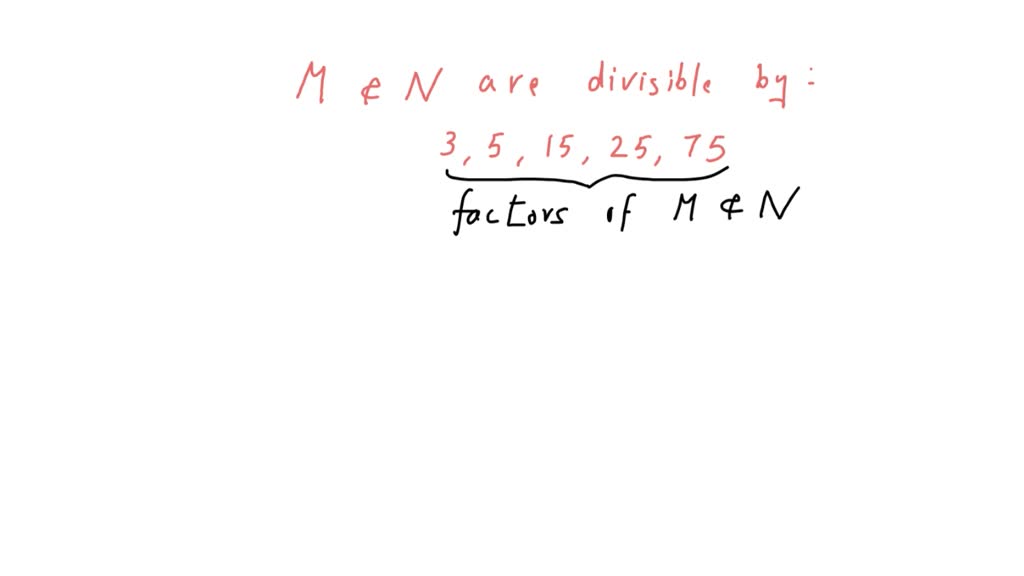 M & N are divisible by:
3, 5, 15, 25, 75
factors of M & N